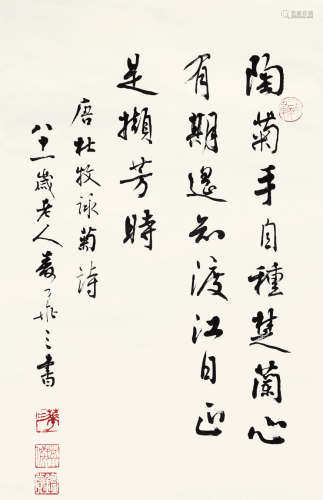 陶菊手自種楚蘭心
有期遥知渡江日正
是擷芳時
唐杜牧詠菊詩
八十一歲老人麥華三書